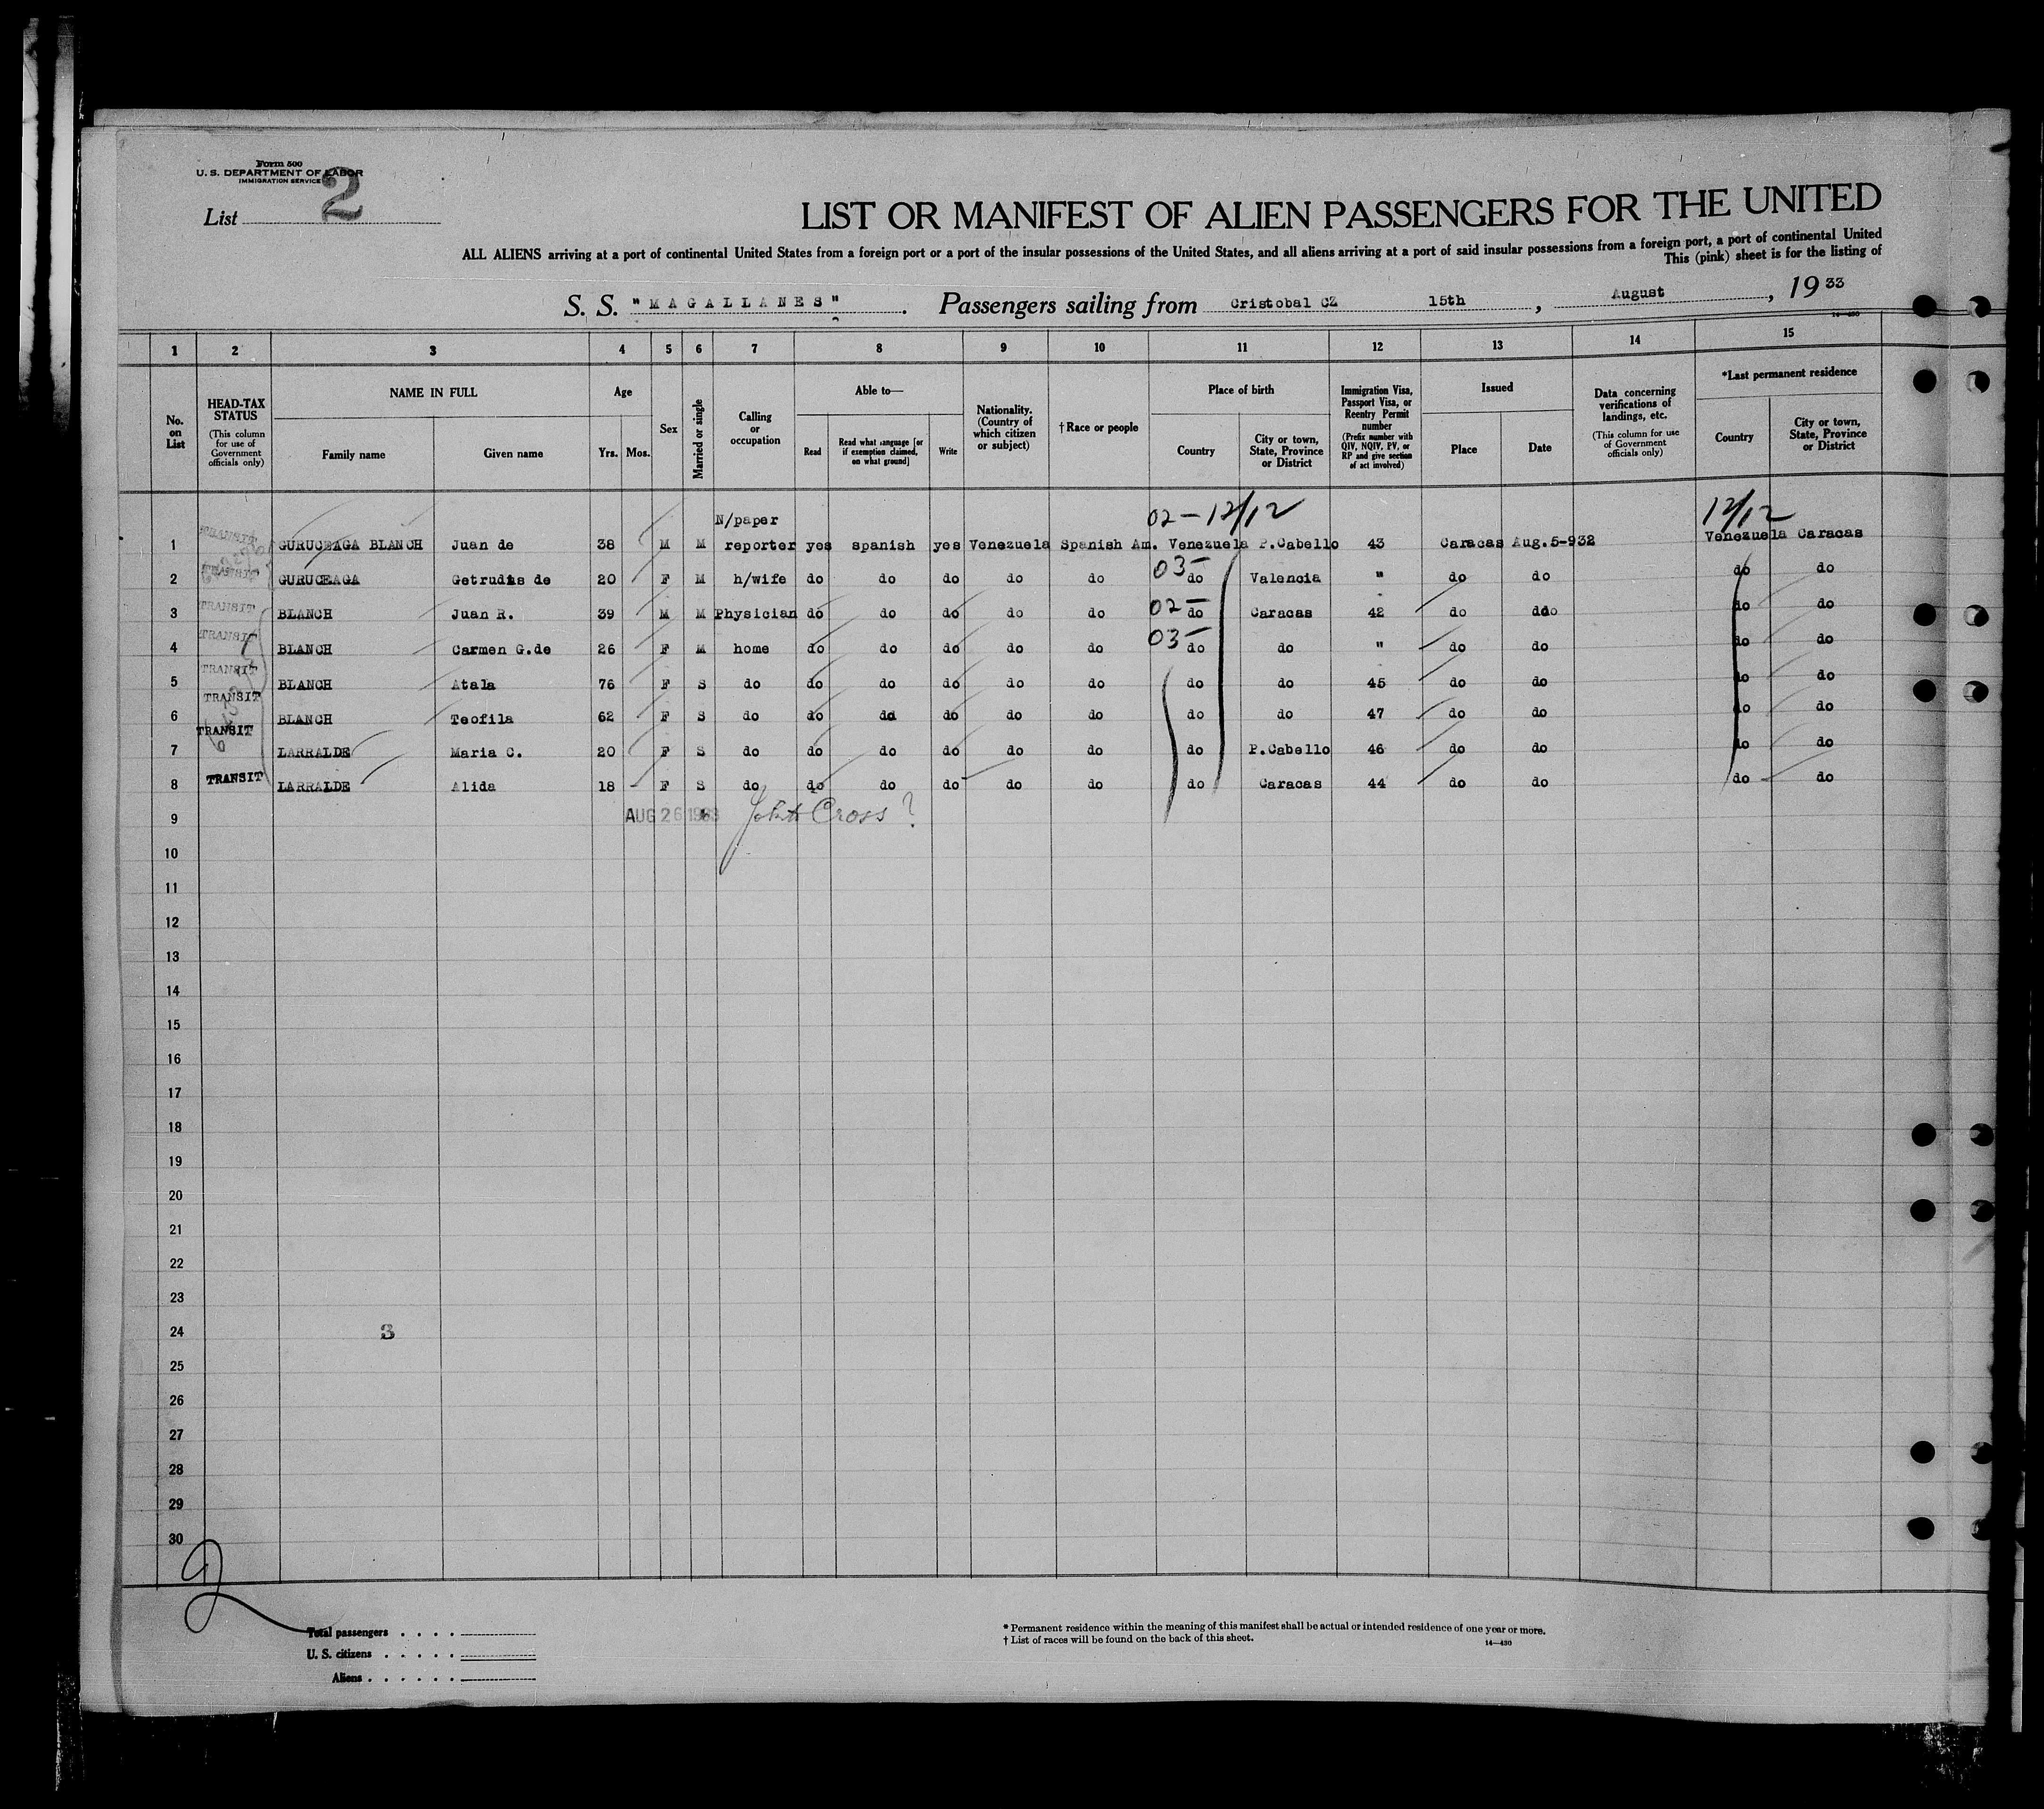 Form 500
U. S. DEPARTMENT OF LABOR
IMMIGRATION SERVICE
List 2
LIST OR MANIFEST OF ALIEN PASSENGERS FOR THE UNITED
ALL ALIENS arriving at a port of continental United States from a foreign port or a port of the insular possessions of the United States, and all aliens arriving at a port of said insular possessions from a foreign port, a port of continental United
This (pink) sheet is for the listing of
S. S. "MAGALLANES". Passengers sailing from Cristobal CZ 15th, August, 1933
14-430
1 2 3 4 5 6 7 8 9 10 11 12 13 14 15
No. on List
HEAD-TAX STATUS
(This column for use of Government officials only)
NAME IN FULL
Family name Given name
Age
Yrs. Mos.
Sex
Married or single
Calling or occupation
Able to—
Read
Read what language [or if exemption claimed, on what ground]
Write
Nationality. (Country of which citizen or subject)
†Race or people
Place of birth
Country
City or town, State, Province or District
Immigration Visa, Passport Visa, or Reentry Permit number
(Prefix number with QIV, NQIV, PV, or RP and give section of act involved)
Issued
Place Date
Data concerning verifications of landings, etc.
(This column for use of Government officials only)
*Last permanent residence
Country
City or town, State, Province or District
N/paper 02-12/12 12/12
1 TRANSIT GURUCEAGA BLANCH Juan de 38 M M reporter yes spanish yes Venezuela Spanish Am. Venezuela P.Cabello 43 Caracas Aug.5-932 Venezuela Caracas
2 TRANSIT GURUCEAGA Getrudis de 20 F M h/wife do do do do do 03- do Valencia " do do do do
3 TRANSIT BLANCH Juan R. 39 M M Physician do do do do do 02- do Caracas 42 do ddo do do
4 TRANSIT BLANCH Carmen G.de 26 F M home do do do do do 03- do do " do do do do
5 TRANSIT BLANCH Atala 76 F S do do do do do do do do 45 do do do do
6 TRANSIT BLANCH Teofila 62 F S do do do do do do do do 47 do do do do
7 TRANSIT LARRALDE Maria C. 20 F S do do do do do do do P.Cabello 46 do do do do
8 TRANSIT LARRALDE Alida 18 F S do do do do do do do Caracas 44 do do do do
9 AUG 26 1933 Cross ?
10
11
12
13
14
15
16
17
18
19
20
21
22
23
24 3
25
26
27
28
29
30
Total passengers . . . .
U. S. citizens . . . . .
Aliens . . . . . .
* Permanent residence within the meaning of this manifest shall be actual or intended residence of one year or more.
† List of races will be found on the back of this sheet.
14—430